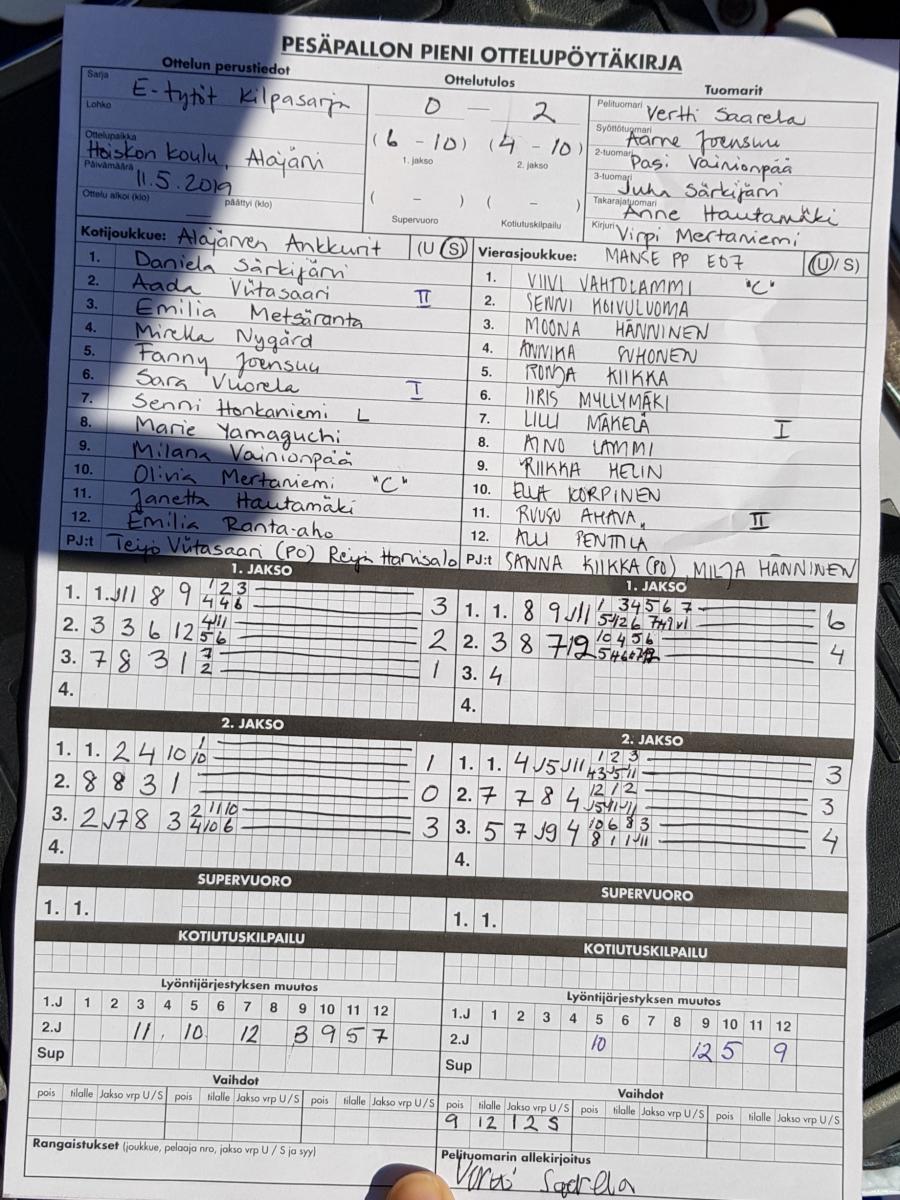 PESÄPALLON PIENI OTTELUPÖYTÄKIRJA
Ottelun perustiedot
Ottelutulos
Tuomarit
Sarja
E-tytöt Kilpasarja
Lohko
Ottelupaikka
Hoiskon koulu, Alajärvi
Päivämäärä
11.5.2019
Ottelu alkoi (klo) päättyi (klo)
0 — 2
(6 - 10) (4 - 10)
1. jakso 2. jakso
( - ) ( - )
Supervuoro Kotiutuskilpailu
Pelituomari Vertti Saarela
Syöttötuomari Aarne Joensuu
2-tuomari Pasi Vainionpää
3-tuomari Juha Särkijärvi
Takarajatuomari Anne Hautamäki
Kirjuri Virpi Mertaniemi
Kotijoukkue: Alajärven Ankkurit (U S)
1. Daniela Särkijärvi
2. Aada Viitasaari II
3. Emilia Metsäranta
4. Mirella Nygård
5. Fanny Joensuu
6. Sara Vuorela I
7. Senni Honkaniemi L
8. Marie Yamaguchi
9. Milana Vainionpää
10. Olivia Mertaniemi "C"
11. Janetta Hautamäki
12. Emilia Ranta-aho
PJ:t Teijo Viitasaari (PO) Reijo Harvisalo
Vierasjoukkue: MANSE PP E07 (U/S)
1. VIIVI VAHTOLAMMI "C"
2. SENNI KOIVULUOMA
3. MOONA HÄNNINEN
4. ANNIKA SUHONEN
5. RONJA KIIKKA
6. IIRIS MYLLYMÄKI
7. LILLI MÄKELÄ I
8. AINO LAMMI
9. RIIKKA HELIN
10. ELLA KORPINEN
11. RUUSU AHAVA II
12. ALLI PENTTILA
PJ:t SANNA KIIKKA (PO), MILJA HÄNNINEN
1. JAKSO
1. 1. 8 9 3
2. 3 3 6 12 2
3. 7 8 3 1 1
4.
1. JAKSO
1. 1. 8 9 6
2. 3 8 4
3. 4
4.
2. JAKSO
1. 1. 2 4 10 1
2. 8 8 3 1 0
3. 2 3 3
4.
2. JAKSO
1. 1. 3
2. 7 7 8 4 3
3. 5 7 4
4.
SUPERVUORO
1. 1.
SUPERVUORO
1. 1.
KOTIUTUSKILPAILU
KOTIUTUSKILPAILU
Lyöntijärjestyksen muutos
1.J 1 2 3 4 5 6 7 8 9 10 11 12
2.J 11. 10. 12 3 9 5 7
Sup
Lyöntijärjestyksen muutos
1.J 1 2 3 4 5 6 7 8 9 10 11 12
2.J 10 12 5 9
Sup
Vaihdot
pois tilalle Jakso vrp U / S pois tilalle Jakso vrp U / S pois tilalle Jakso vrp U / S
Vaihdot
pois tilalle Jakso vrp U / S pois tilalle Jakso vrp U / S pois tilalle Jakso vrp U / S
9 12 1 2 S
Rangaistukset (joukkue, pelaaja nro, jakso vrp U / S ja syy)
Pelituomarin allekirjoitus